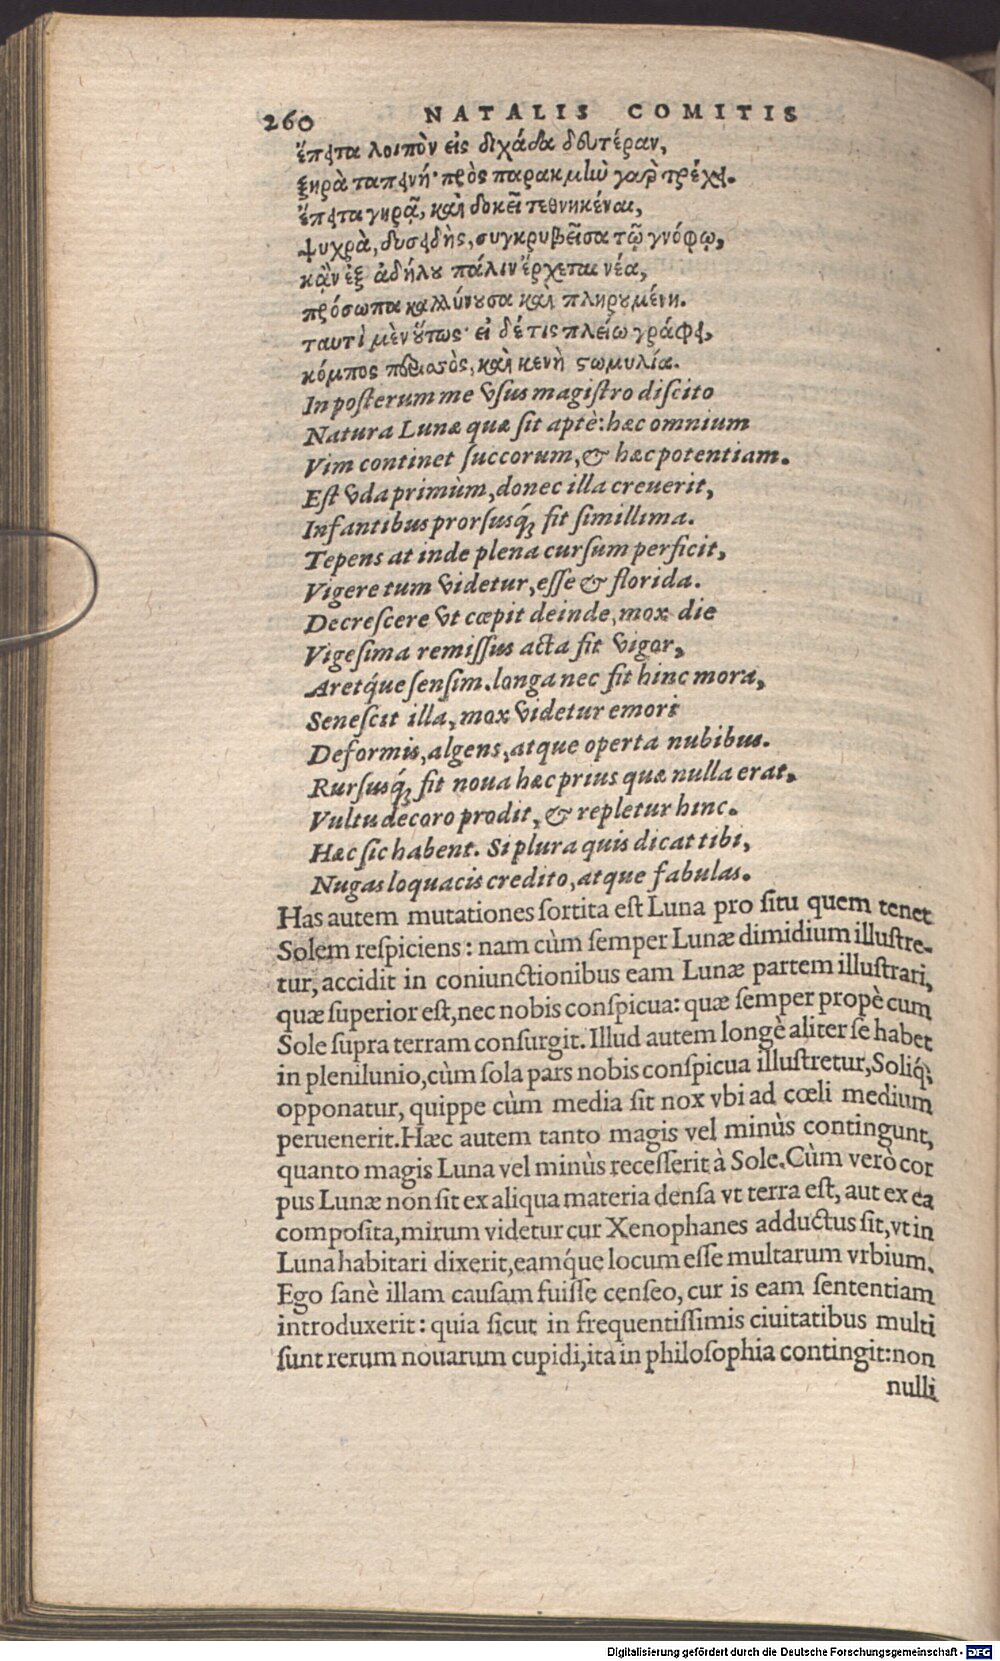 260 NATALIS COMITIS
ἔπειτα λοιπὸν εἰς διχάδα δευτέραν,
ξηρὰ ταπεινή· πρὸς παρακμὴν γὰρ τρέχει.
ἔπειτα γηρᾷ, καὶ δοκεῖ τεθνηκέναι,
ψυχρὰ, δυσειδὴς, συγκρυβεῖσα τῷ γνόφῳ,
κᾂν ἐξ ἀδήλου πάλιν ἔρχεται νέα,
πρόσωπα καλλύνουσα καὶ πληρουμένη.
ταυτὶ μὲν οὕτως· εἰ δέ τις πλείω γράφει,
κόμπος περισσὸς, καὶ κενὴ στωμυλία.
In posterum me vsus magistro discito
Natura Lunæ quæ sit aptè: hæc omnium
Vim continet succorum, & hæc potentiam.
Est vda primùm, donec illa creuerit,
Infantibus prorsusq́; fit simillima.
Tepens at inde plena cursum perficit,
Vigere tum videtur, esse & florida.
Decrescere vt cœpit deinde, mox die
Vigesima remissus acta fit vigor,
Aretq́ue sensim. longa nec fit hinc mora,
Senescit illa, mox videtur emori
Deformis, algens, atque operta nubibus.
Rursusq́; fit noua hæc prius quæ nulla erat.
Vultu decoro prodit, & repletur hinc.
Hæc sic habent. Si plura quis dicat tibi,
Nugas loquacis credito, atque fabulas.
Has autem mutationes sortita est Luna pro situ quem tenet
Solem respiciens: nam cùm semper Lunæ dimidium illustre-
tur, accidit in coniunctionibus eam Lunæ partem illustrari,
quæ superior est, nec nobis conspicua: quæ semper propè cum
Sole supra terram consurgit. Illud autem longè aliter se habet
in plenilunio, cùm sola pars nobis conspicua illustretur, Soliq́;
opponatur, quippe cùm media sit nox vbi ad cœli medium
peruenerit. Hæc autem tanto magis vel minùs contingunt,
quanto magis Luna vel minùs recesserit à Sole. Cùm verò cor
pus Lunæ non sit ex aliqua materia densa vt terra est, aut ex ea
composita, mirum videtur cur Xenophanes adductus sit, vt in
Luna habitari dixerit, eamq́ue locum esse multarum vrbium.
Ego sanè illam causam fuisse censeo, cur is eam sententiam
introduxerit: quia sicut in frequentissimis ciuitatibus multi
sunt rerum nouarum cupidi, ita in philosophia contingit: non
nulli
Digitalisierung gefördert durch die Deutsche Forschungsgemeinschaft - DFG